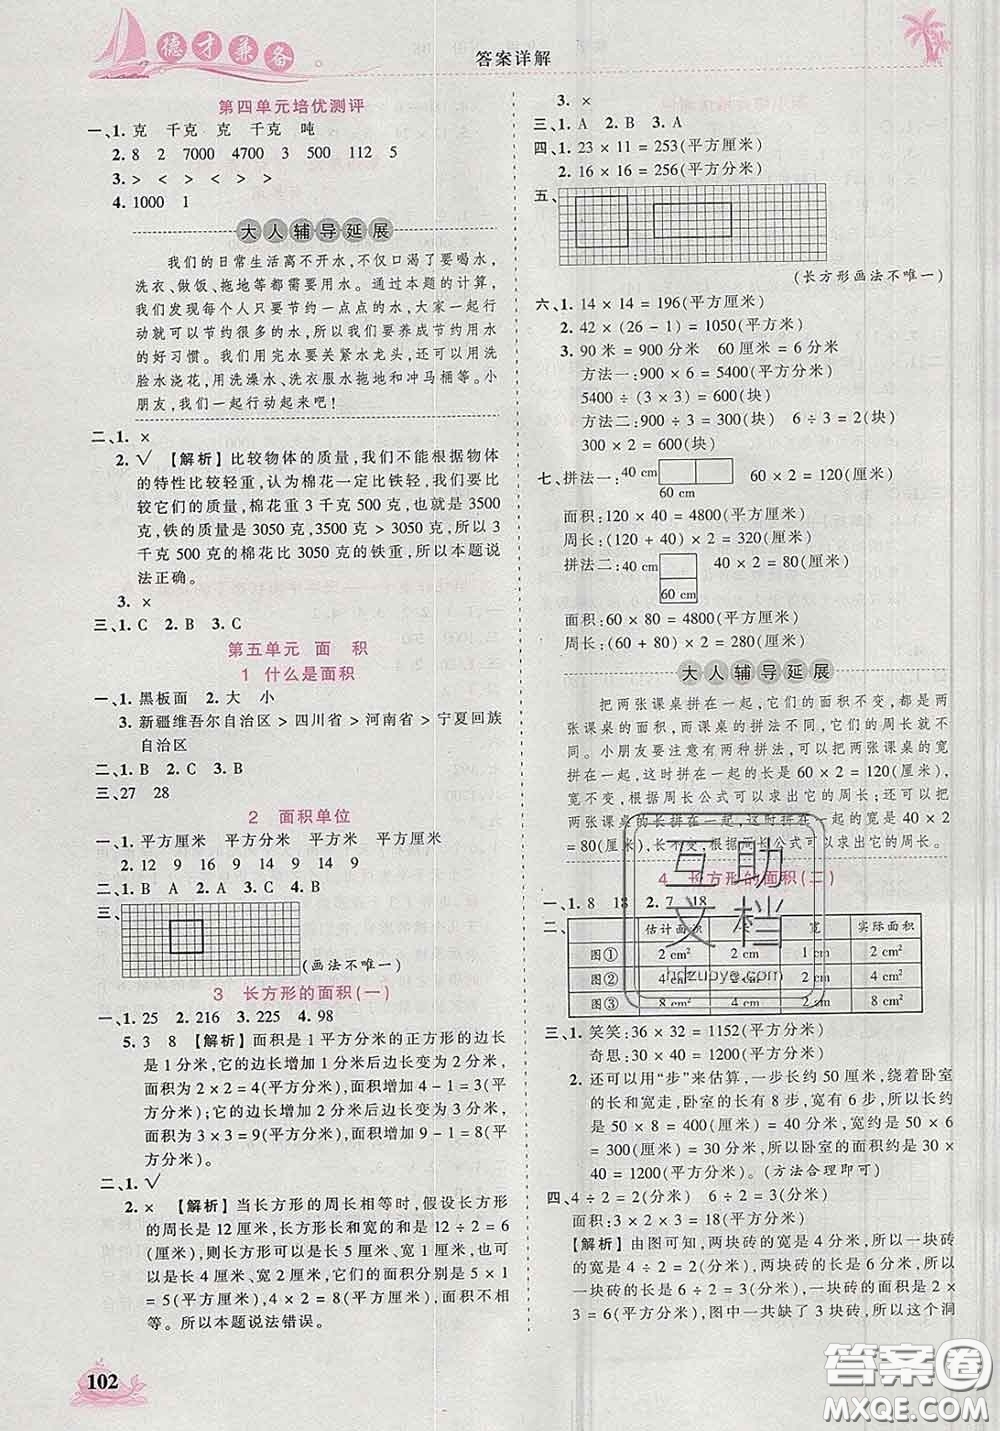 德才兼备
答案详解
第四单元培优测评
一、1. 克 千克 克 千克 吨
2. 8 2 7000 4700 3 500 112 5
3. > < > < > >
4. 1000 1
大人辅导延展
我们的日常生活离不开水,不仅口渴了要喝水,
洗衣、做饭、拖地等都需要用水。通过本题的计算,
我们发现每个人只要节约一点点的水,大家一起行
动就可以节约很多的水,所以我们要养成节约用水
的好习惯。我们用完水要关紧水龙头,还可以用洗
脸水浇花,用洗澡水、洗衣服水拖地和冲马桶等。小
朋友,我们一起行动起来吧!
二、1. ×
2. √ 【解析】比较物体的质量,我们不能根据物体
的特性比较轻重,认为棉花一定比铁轻,我们要比
较它们的质量,棉花重 3 千克 500 克,也就是 3500
克,铁的质量是 3050 克,3500 克 > 3050 克,所以 3
千克 500 克的棉花比 3050 克的铁重,所以本题说
法正确。
3. ×
三、1. C 2. B 3. C
第五单元 面 积
1 什么是面积
一、1. 黑板面 2. 大 小
3. 新疆维吾尔自治区 > 四川省 > 河南省 > 宁夏回族
自治区
二、1. B 2. C 3. B
三、27 28
2 面积单位
一、1. 平方厘米 平方分米 平方米 平方厘米
2. 12 9 16 9 14 9 14 9
二、1. B A 2. A 3. C 4. B
三、
(画法不唯一)
3 长方形的面积(一)
一、1. 25 2. 216 3. 225 4. 98
5. 3 8 【解析】面积是 1 平方分米的正方形的边长
是 1 分米,它的边长增加 1 分米后边长变为 2 分米,
面积为 2 × 2 = 4(平方分米),面积增加 4 - 1 = 3(平
方分米);它的边长增加 2 分米后边长变为 3 分米,
面积为 3 × 3 = 9(平方分米),面积增加 9 - 1 = 8(平
方分米)。
二、1. √
2. × 【解析】当长方形的周长相等时,假设长方形
的周长是 12 厘米,长方形长和宽的和是 12 ÷ 2 = 6
(厘米),则长方形可以是长 5 厘米、宽 1 厘米,还可
以是长 4 厘米、宽 2 厘米,它们的面积可以是 5 ×
1 = 5(平方厘米),4 × 2 = 8(平方厘米),面积不相
等。所以本题说法错误。
102
3. ×
三、1. A 2. B 3. A
四、1. 23 × 11 = 253(平方厘米)
2. 16 × 16 = 256(平方分米)
五、
(长方形画法不唯一)
六、1. 14 × 14 = 196(平方厘米)
2. 42 × (26 - 1) = 1050(平方米)
3. 90 米 = 900 分米 60 厘米 = 6 分米
方法一:900 × 6 = 5400(平方分米)
5400 ÷ (3 × 3) = 600(块)
方法二:900 ÷ 3 = 300(块) 6 ÷ 3 = 2(块)
300 × 2 = 600(块)
七、拼法一: 40 cm 60 cm 60 × 2 = 120(厘米)
面积:120 × 40 = 4800(平方厘米)
周长:(120 + 40) × 2 = 320(厘米)
拼法二: 40 cm 60 cm 40 × 2 = 80(厘米)
面积:60 × 80 = 4800(平方厘米)
周长:(60 + 80) × 2 = 280(厘米)
大人辅导延展
把两张课桌拼在一起,它们的面积不变,都是两
张课桌的面积,而课桌的拼法不同,它们的周长就不
同。小朋友要注意有两种拼法,可以把两张课桌的宽
拼在一起,这时拼在一起的长是 60 × 2 = 120(厘米),
宽不变,根据周长公式可以求出它的周长;也可以把
两张课桌的长拼在一起,这时拼在一起的宽是 40 × 2
= 80(厘米),长不变,根据周长公式可以求出它的周长。
4 长方形的面积(二)
一、1. 8 18 2. 7 18
二、
估计面积 长 宽 实际面积
图① 2 cm² 2 cm 1 cm 2 cm²
图② 4 cm² 2 cm 2 cm 4 cm²
图③ 8 cm² 4 cm 2 cm 8 cm²
三、1. 笑笑:36 × 32 = 1152(平方分米)
奇思:30 × 40 = 1200(平方分米)
2. 还可以用“步”来估算,一步长约 50 厘米,绕着卧室
的长和宽走,卧室的长有 8 步,宽有 6 步,所以长约
是 50 × 8 = 400(厘米) = 40(分米),宽约是 50 × 6
= 300(厘米) = 30(分米),所以卧室的面积约是 30 ×
40 = 1200(平方分米)。(方法合理即可)
四、4 ÷ 2 = 2(分米) 6 ÷ 2 = 3(分米)
面积:3 × 2 × 3 = 18(平方分米)
【解析】由图可知,两块砖的宽是 4 分米,所以一块砖
的宽是 4 ÷ 2 = 2(分米),两块砖的长是 6 分米,所以
一块砖的长是 6 ÷ 2 = 3(分米),一块砖的面积是 2 ×
3 = 6(平方分米),图中一共缺了 3 块砖,所以这个洞
互助文档
hdzuoye.com
答案卷
MXQE.COM